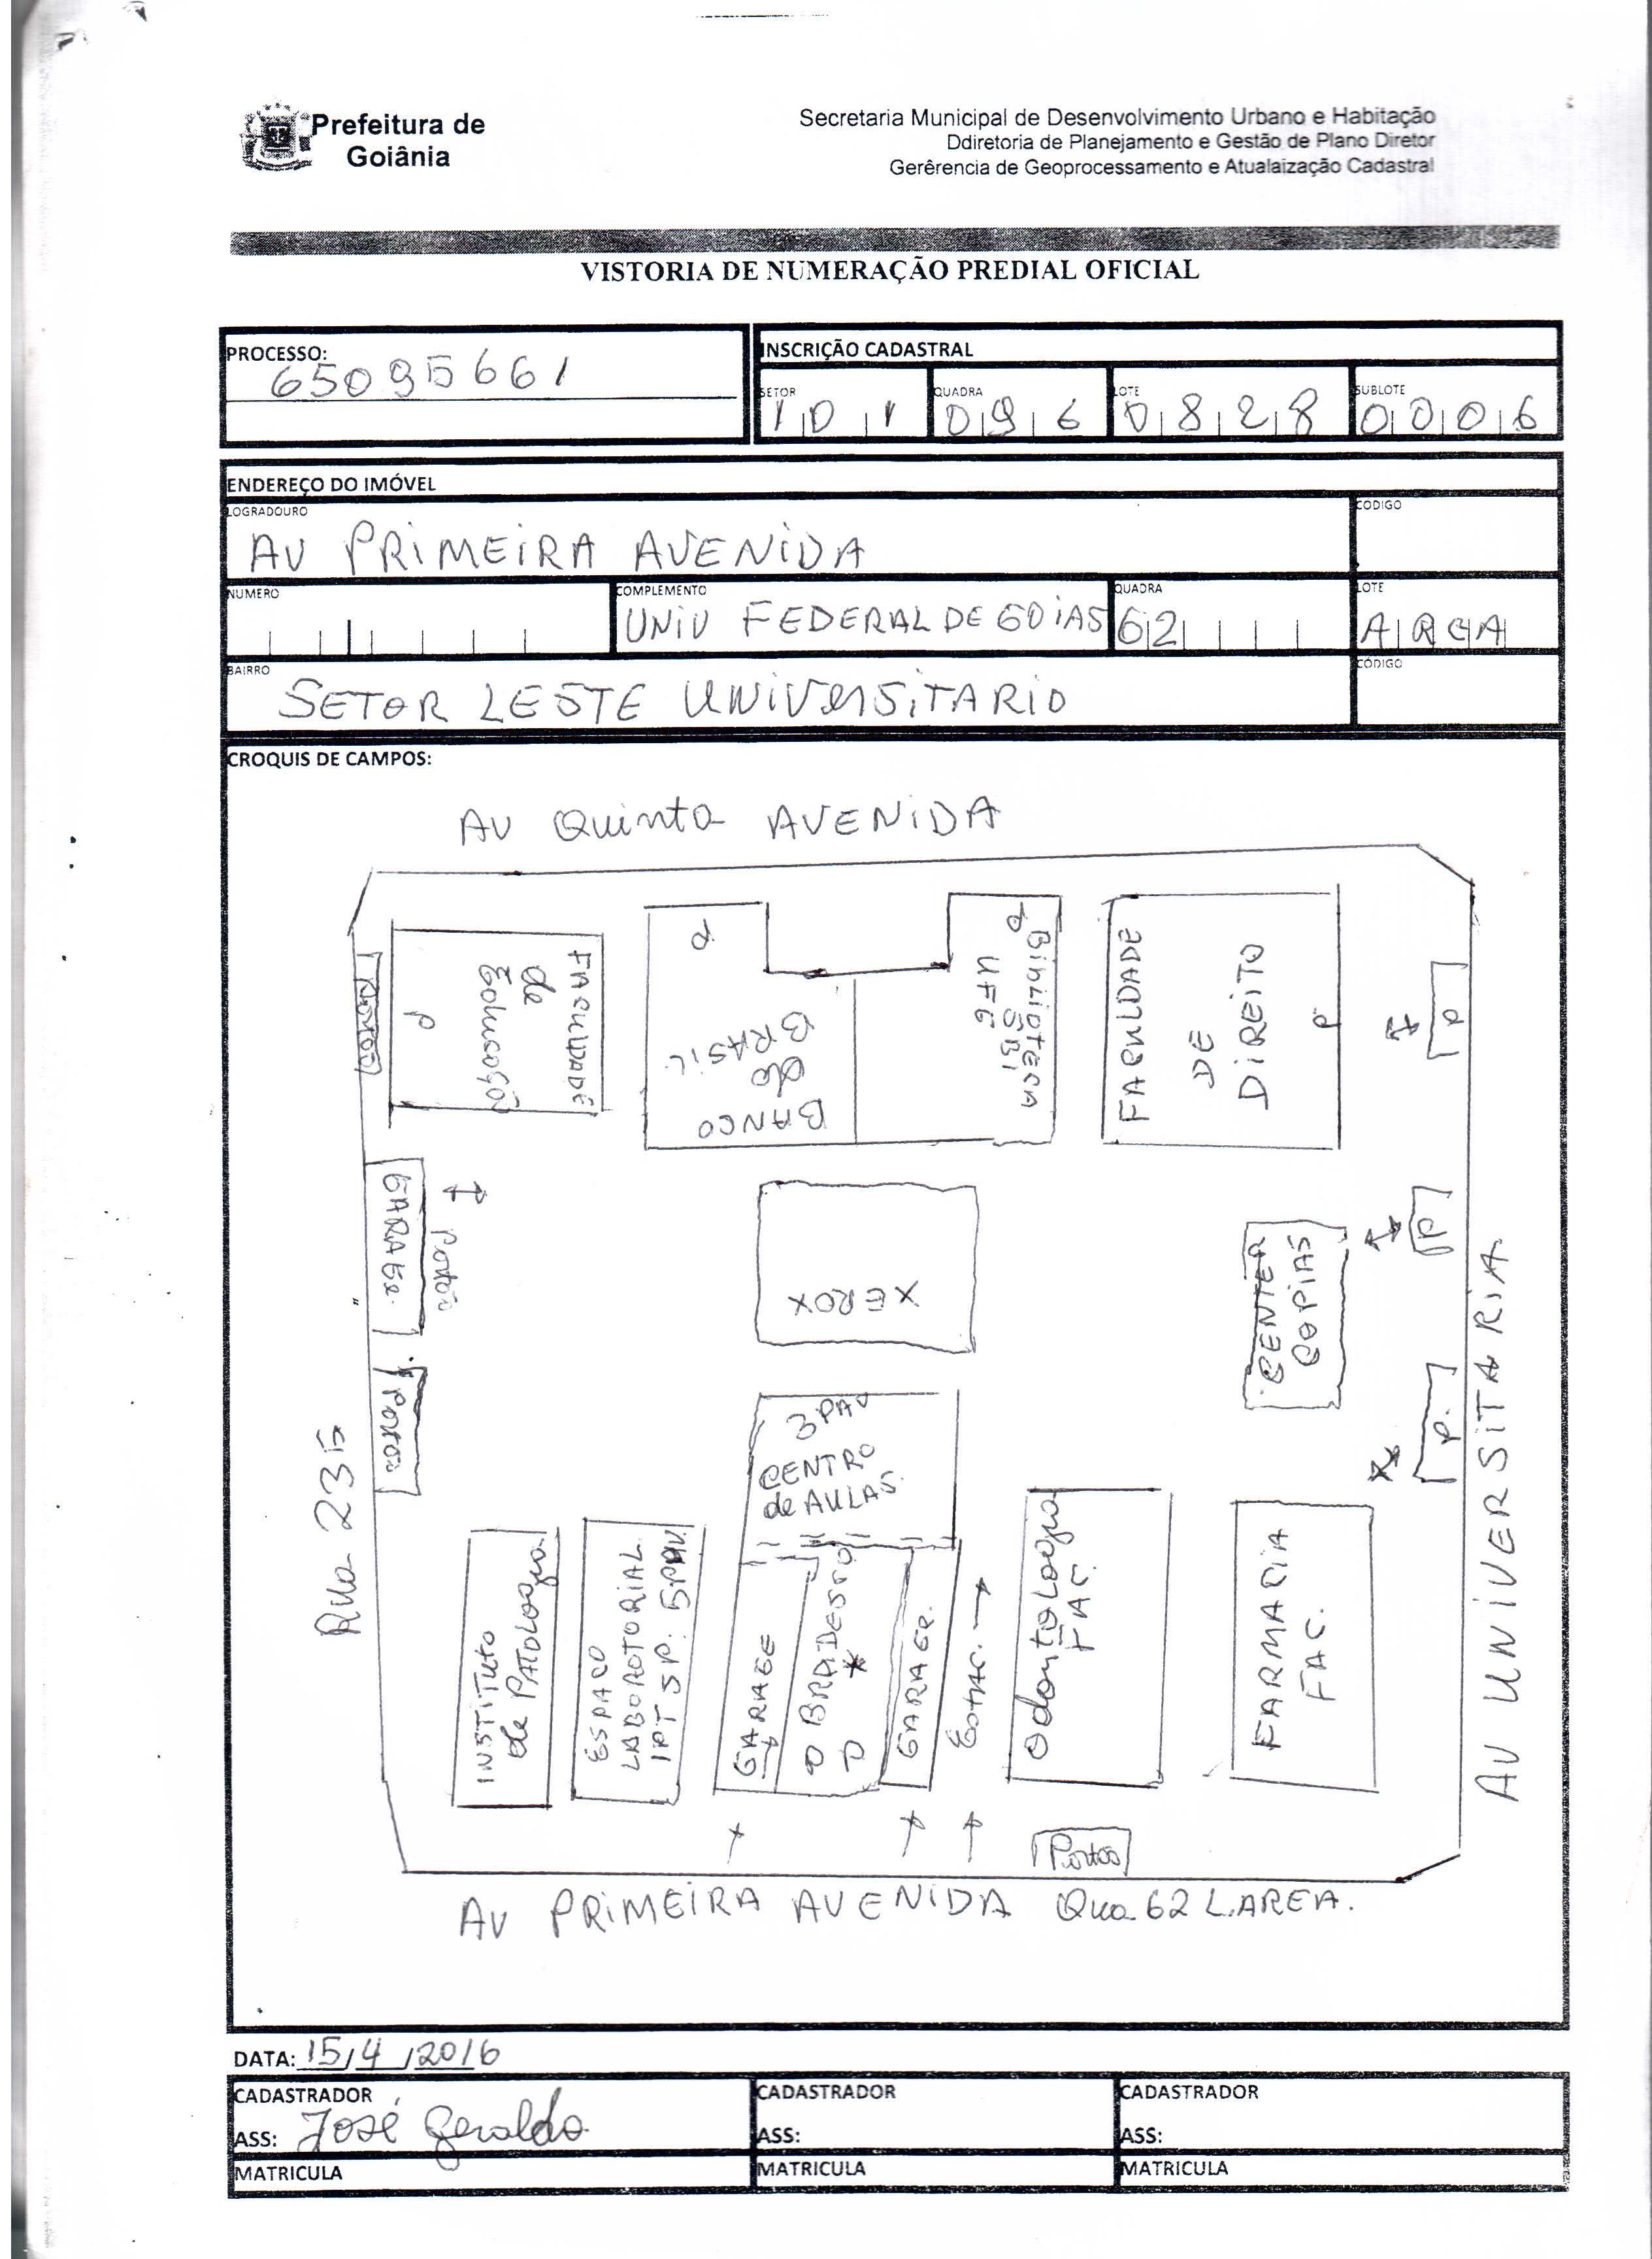 Prefeitura de
Goiânia
Secretaria Municipal de Desenvolvimento Urbano e Habitação
Ddiretoria de Planejamento e Gestão de Plano Diretor
Gerêrencia de Geoprocessamento e Atualaização Cadastral
VISTORIA DE NUMERAÇÃO PREDIAL OFICIAL
PROCESSO:
65095661
INSCRIÇÃO CADASTRAL
SETOR
101
QUADRA
096
LOTE
0828
SUBLOTE
0006
ENDEREÇO DO IMÓVEL
LOGRADOURO
AV PRIMEIRA AVENIDA
CODIGO
NUMERO
COMPLEMENTO
UNIV FEDERAL DE GOIAS
QUADRA
62
LOTE
AREA
BAIRRO
SETOR LESTE UNIVERSITARIO
CÓDIGO
CROQUIS DE CAMPOS:
AV Quinta AVENIDA
FACULDADE
de
Educação
P
Portão
P
BANCO
do
BRASIL
P
Biblioteca
SBi
UFG
FACULDADE
DE
DIREITO
P
P
GARAGE.
Portão
XEROX
CENTER
COPIAS
P
Portão
3 PAV
CENTRO
de AULAS
P.
Rua 235
AV UNIVERSITARIA
INSTITUTO
de PATOLOGIA
ESPAÇO
LABOROTORIAL
IPTSP. 5PAV.
GARAGE
BRADESCO
GARAGE.
Estac.
Odontologia
FAC.
FARMACIA
FAC.
Portão
AV PRIMEIRA AVENIDA Qua 62 L.AREA.
DATA: 15/4/2016
CADASTRADOR
ASS: José Geraldo
MATRICULA
CADASTRADOR
ASS:
MATRICULA
CADASTRADOR
ASS:
MATRICULA